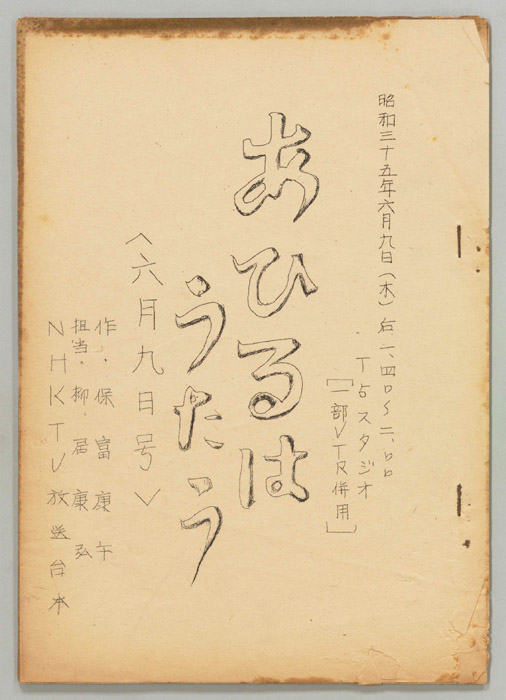 昭和三十五年六月九日(木)后一、四〇〜二、〇〇
T5スタジオ
[一部VTR併用]
あひるは
うたう
〈六月九日号〉
作・保富康午
担当・柳居康弘
NHKTV放送台本